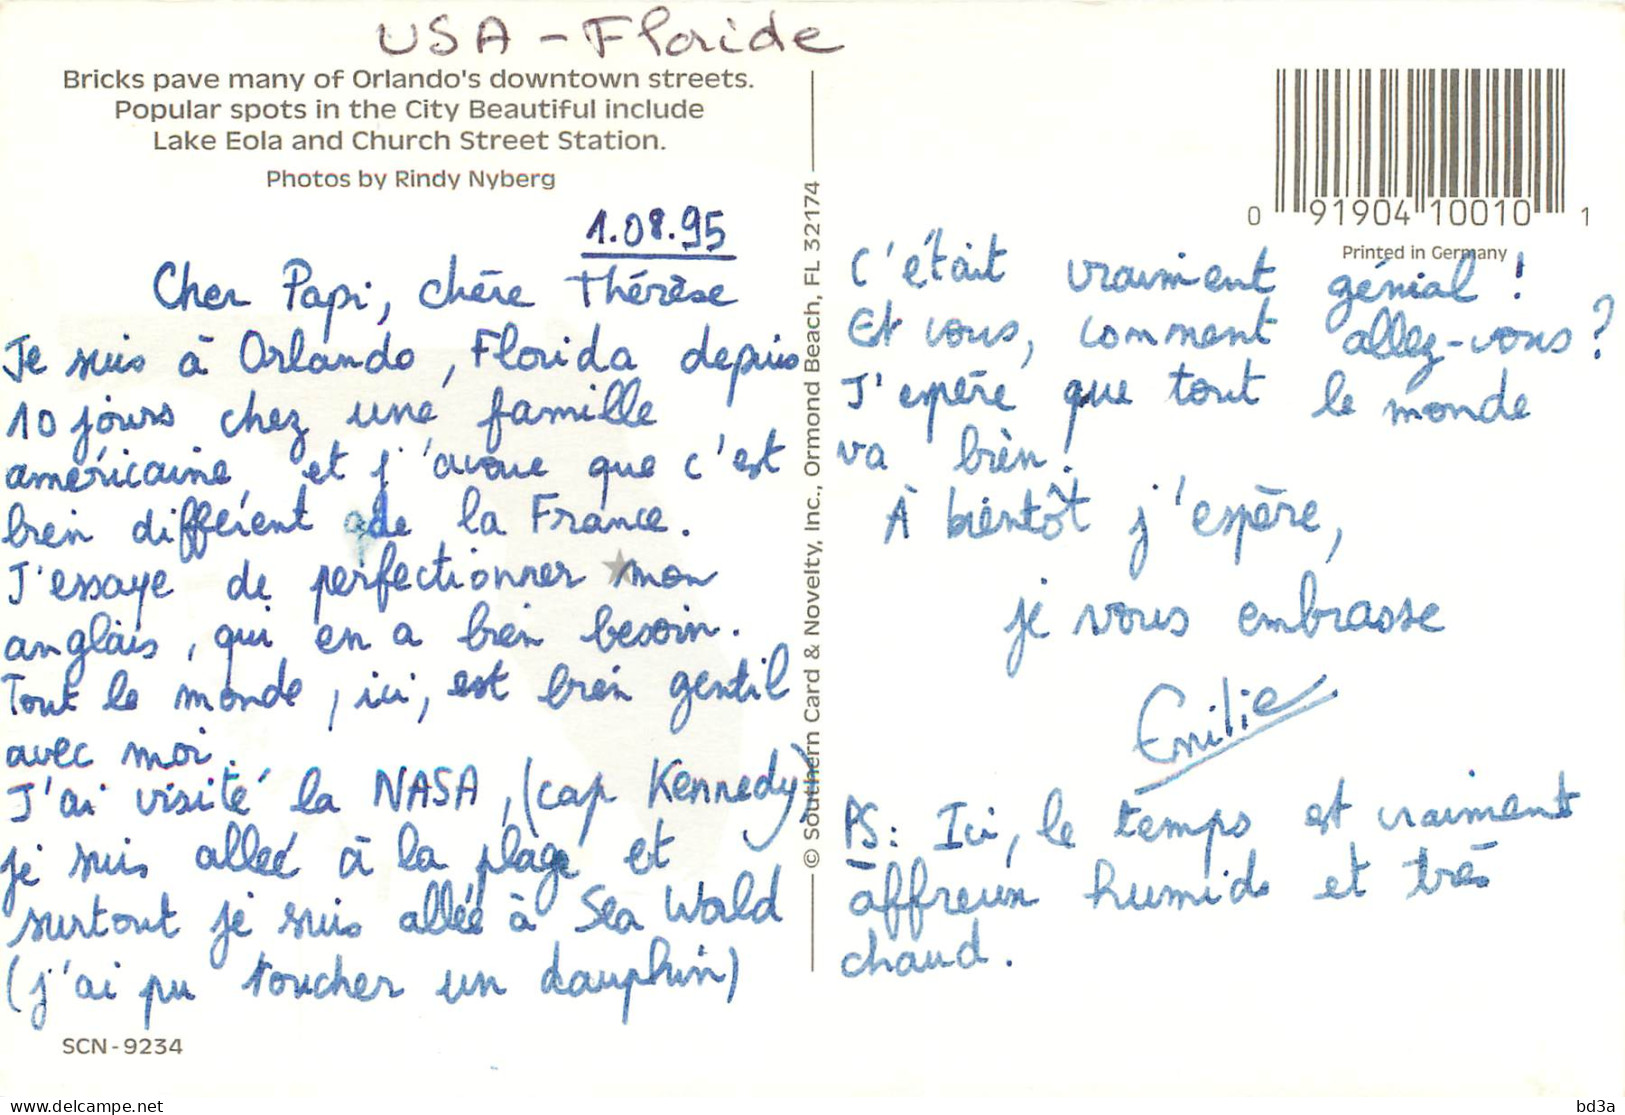 USA - Floride
Bricks pave many of Orlando's downtown streets.
Popular spots in the City Beautiful include
Lake Eola and Church Street Station.
Photos by Rindy Nyberg
1.08.95
Cher Papi, chère Thérèse
Je suis à Orlando, Florida depuis
10 jours chez une famille
américaine, et j'avoue que c'est
bien différent de la France.
J'essaye de perfectionner mon
anglais, qui en a bien besoin.
Tout le monde, ici, est bien gentil
avec moi.
J'ai visité la NASA, (cap Kennedy)
je suis allée à la plage et
surtout je suis allée à Sea World
(j'ai pu toucher un dauphin)
SCN-9234
© Southern Card & Novelty, Inc., Ormond Beach, FL 32174
0 91904 10010 1
Printed in Germany
C'était vraiment génial!
Et vous, comment allez-vous?
J'espère que tout le monde
va bien!
À bientôt j'espère,
je vous embrasse
Emilie
PS: Ici, le temps est vraiment
affreux humide et très
chaud.
delcampe.net
bd3a